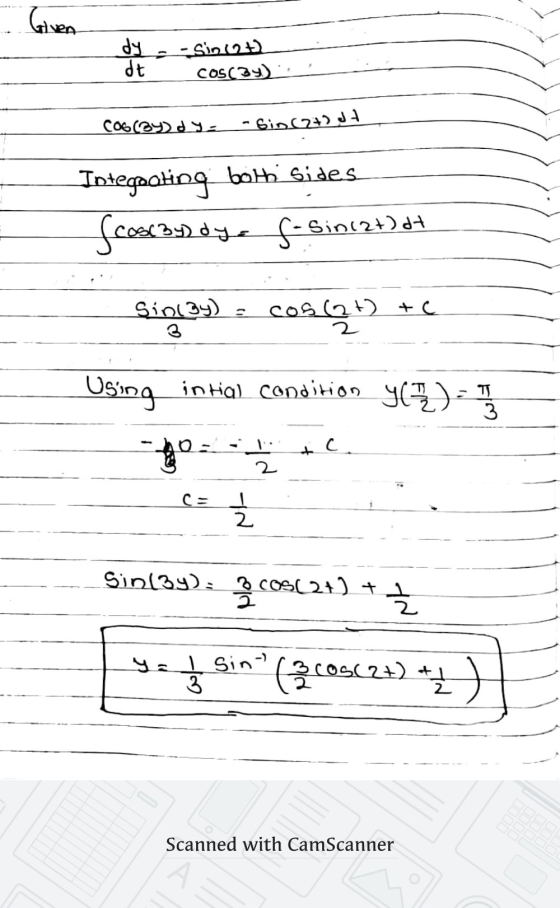 Given
dy/dt = -sin(2t)/cos(3y)
cos(3y) dy = -sin(2t) dt
Integrating both sides
∫cos(3y) dy = ∫-sin(2t) dt
sin(3y)/3 = cos(2t)/2 + c
Using intial condition y(π/2) = π/3
0 = -1/2 + c.
c = 1/2
sin(3y) = 3/2 cos(2t) + 1/2
y = 1/3 sin⁻¹ (3/2 cos(2t) + 1/2)
Scanned with CamScanner